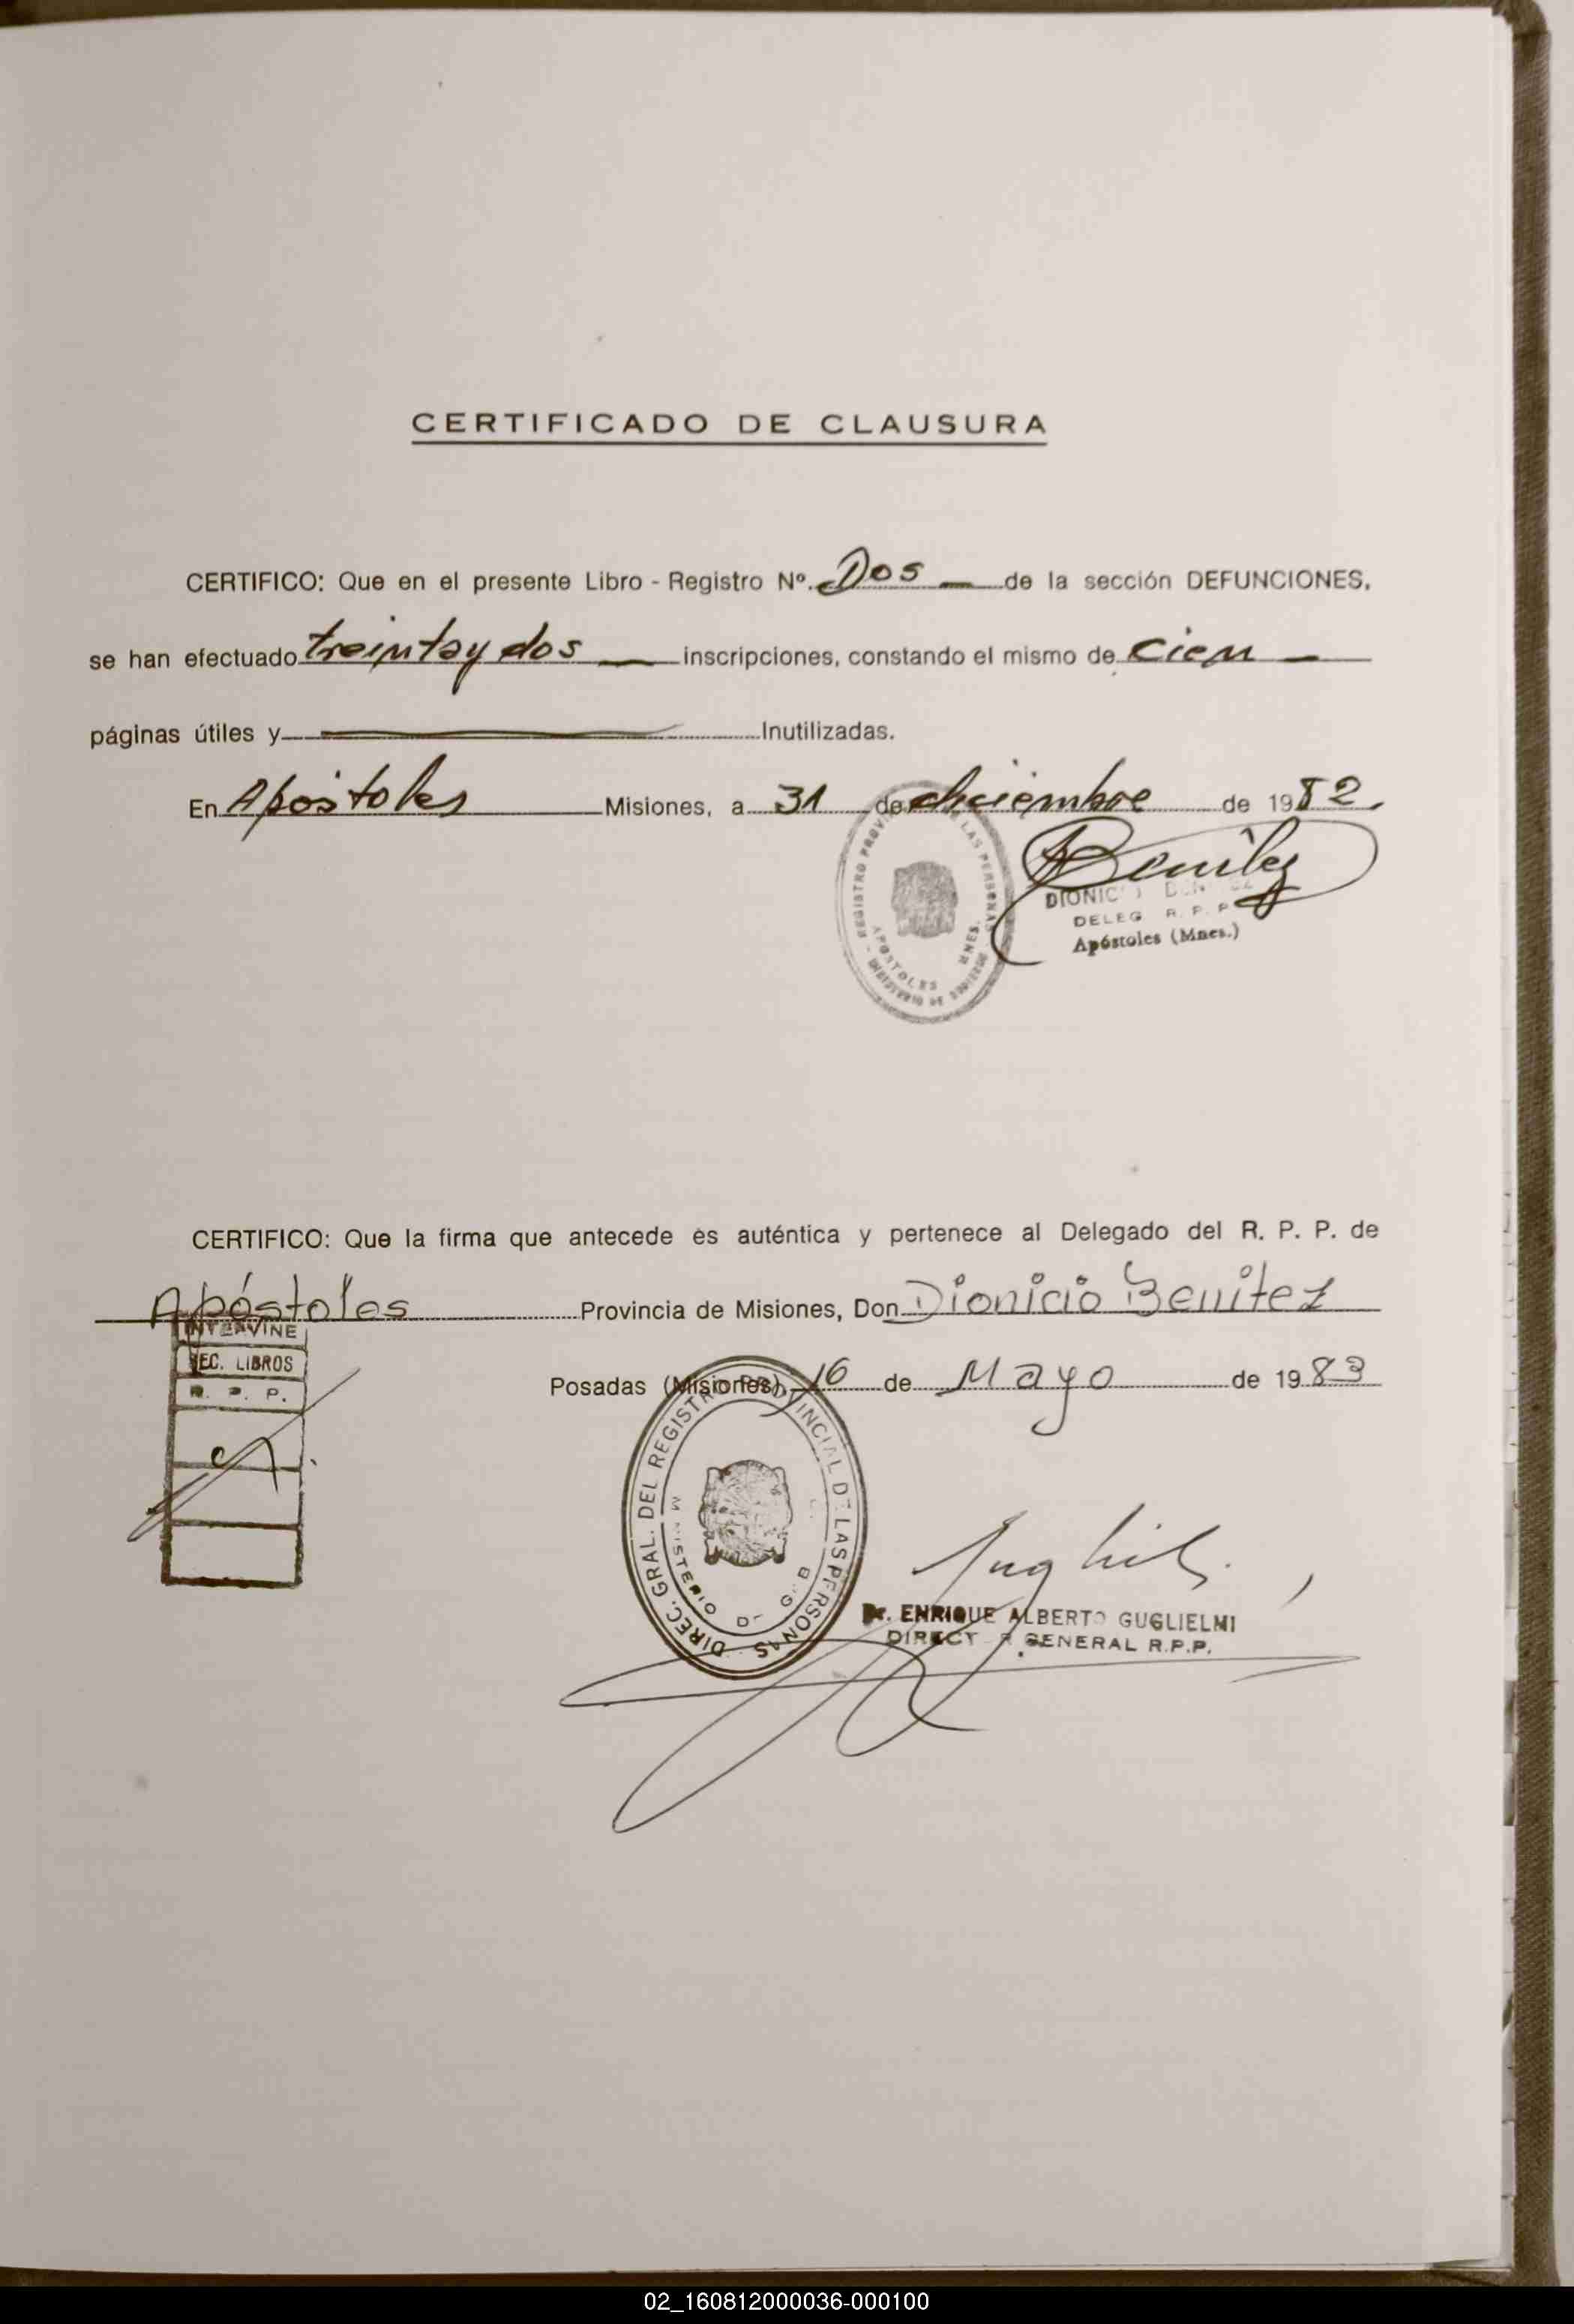 CERTIFICADO DE CLAUSURA
CERTIFICO: Que en el presente Libro - Registro Nº. Dos de la sección DEFUNCIONES,
se han efectuado treinta y dos inscripciones, constando el mismo de cien
páginas útiles y Inutilizadas.
En Apóstoles Misiones, a 31 de diciembre de 1982.
REGISTRO DE LAS PERSONAS
APOSTOLES MNES.
Benitez
DELEG. R. P. P
Apóstoles (Mnes.)
CERTIFICO: Que la firma que antecede es auténtica y pertenece al Delegado del R. P. P. de
Apóstoles Provincia de Misiones, Don Dionicio Benitez
INTERVINE
SEC. LIBROS
R. P. P.
Posadas (Misiones), 16 de Mayo de 1983
DIREC. GRAL. DEL REGISTRO PROVINCIAL DE LAS PERSONAS
MINISTERIO
Dr. ENRIQUE ALBERTO GUGLIELMI
DIRECTOR GENERAL R.P.P.
02_160812000036-000100